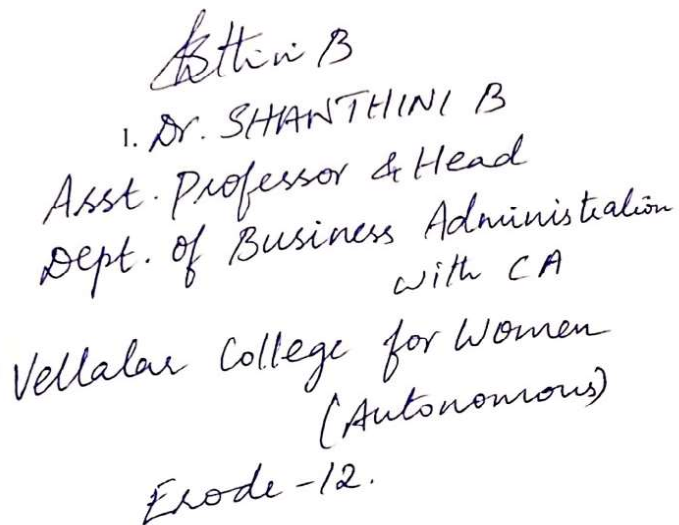 B
1. Dr. SHANTHINI B
Asst. Professor & Head
Dept. of Business Administration
with CA
Vellalar College for Women
(Autonomous)
Erode-12.